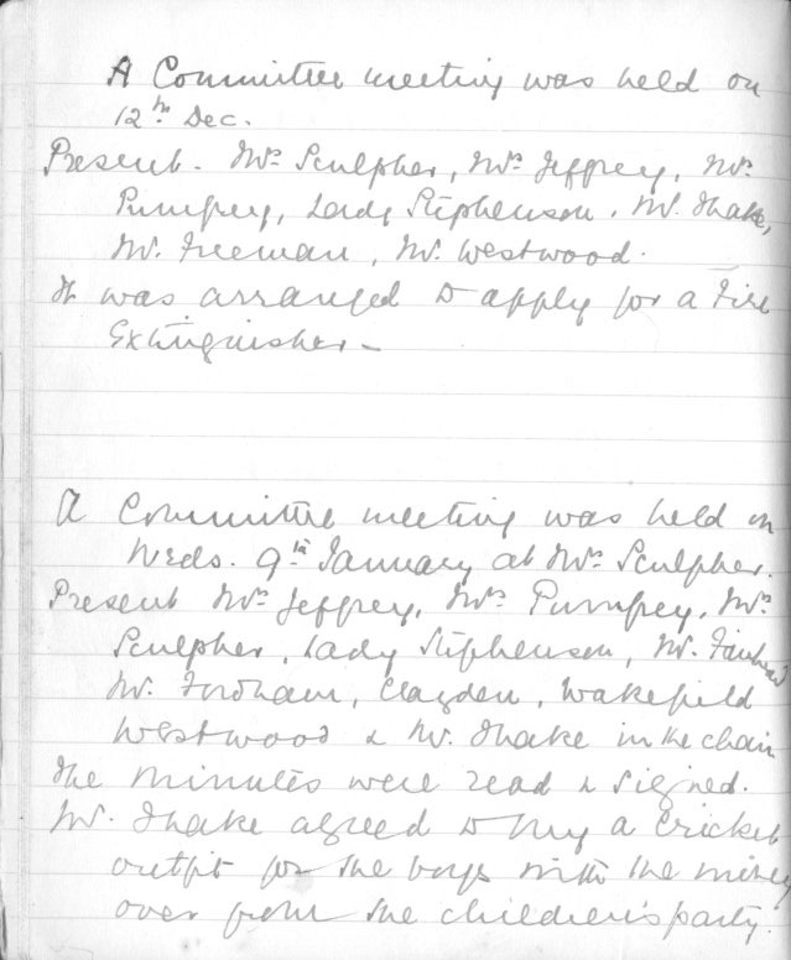 A Committee meeting was held on
12th Dec.
Present. Mrs Sculpher, Mrs Jeffrey, Mrs
Pumfrey, Lady Stephenson, Mr. Thake,
Mr. Freeman, Mr. Westwood.
It was arranged to apply for a Fire
Extinguisher –
A Committee meeting was held on
Weds. 9th January at Mrs Sculpher.
Present Mrs Jeffrey, Mrs Pumfrey, Mrs
Sculpher, Lady Stephenson, Mr. Fairhead
Mr. Fordham, Clayden, Wakefield
Westwood & Mr. Thake in the chair
The minutes were read & signed.
Mr. Thake agreed to buy a cricket
outfit for the boys with the money
over from the children's party.